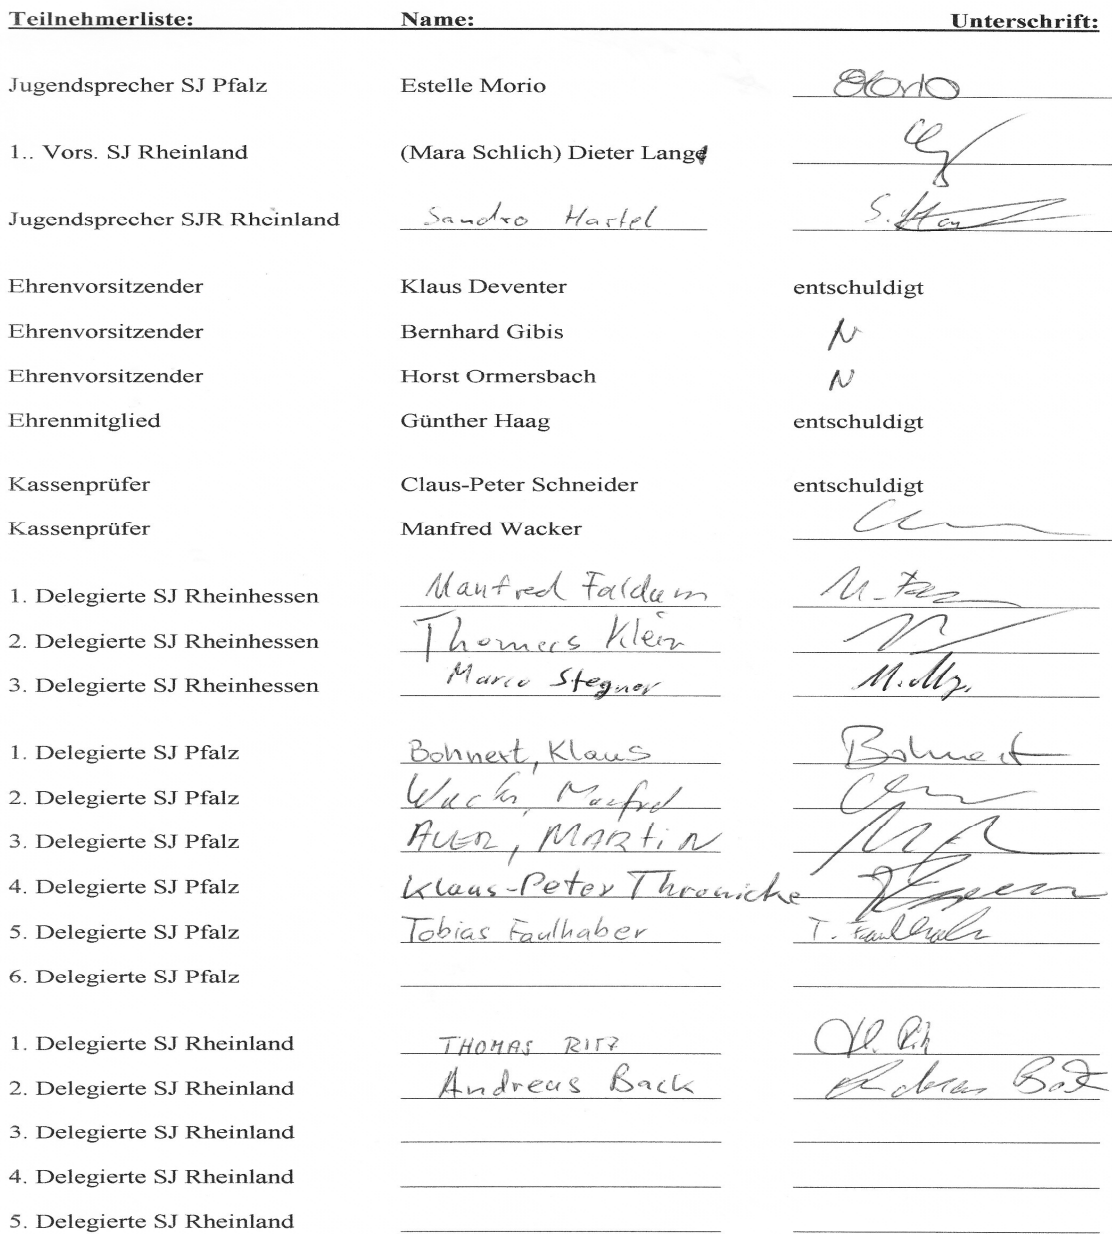 Teilnehmerliste: Name: Unterschrift:
Jugendsprecher SJ Pfalz Estelle Morio EMorio
1.. Vors. SJ Rheinland (Mara Schlich) Dieter Lange
Jugendsprecher SJR Rheinland Sandro Hartel S.
Ehrenvorsitzender Klaus Deventer entschuldigt
Ehrenvorsitzender Bernhard Gibis N
Ehrenvorsitzender Horst Ormersbach N
Ehrenmitglied Günther Haag entschuldigt
Kassenprüfer Claus-Peter Schneider entschuldigt
Kassenprüfer Manfred Wacker
1. Delegierte SJ Rheinhessen Manfred Faldum M.
2. Delegierte SJ Rheinhessen Thomas Klein
3. Delegierte SJ Rheinhessen Marco Stegner M.
1. Delegierte SJ Pfalz Bohnert, Klaus Bohnert
2. Delegierte SJ Pfalz Wacker, Manfred
3. Delegierte SJ Pfalz AUER, MARTiN
4. Delegierte SJ Pfalz Klaus-Peter Thronicke
5. Delegierte SJ Pfalz Tobias Faulhaber T. Faulhaber
6. Delegierte SJ Pfalz
1. Delegierte SJ Rheinland THOMAS RITZ
2. Delegierte SJ Rheinland Andreas Back Andreas Back
3. Delegierte SJ Rheinland
4. Delegierte SJ Rheinland
5. Delegierte SJ Rheinland